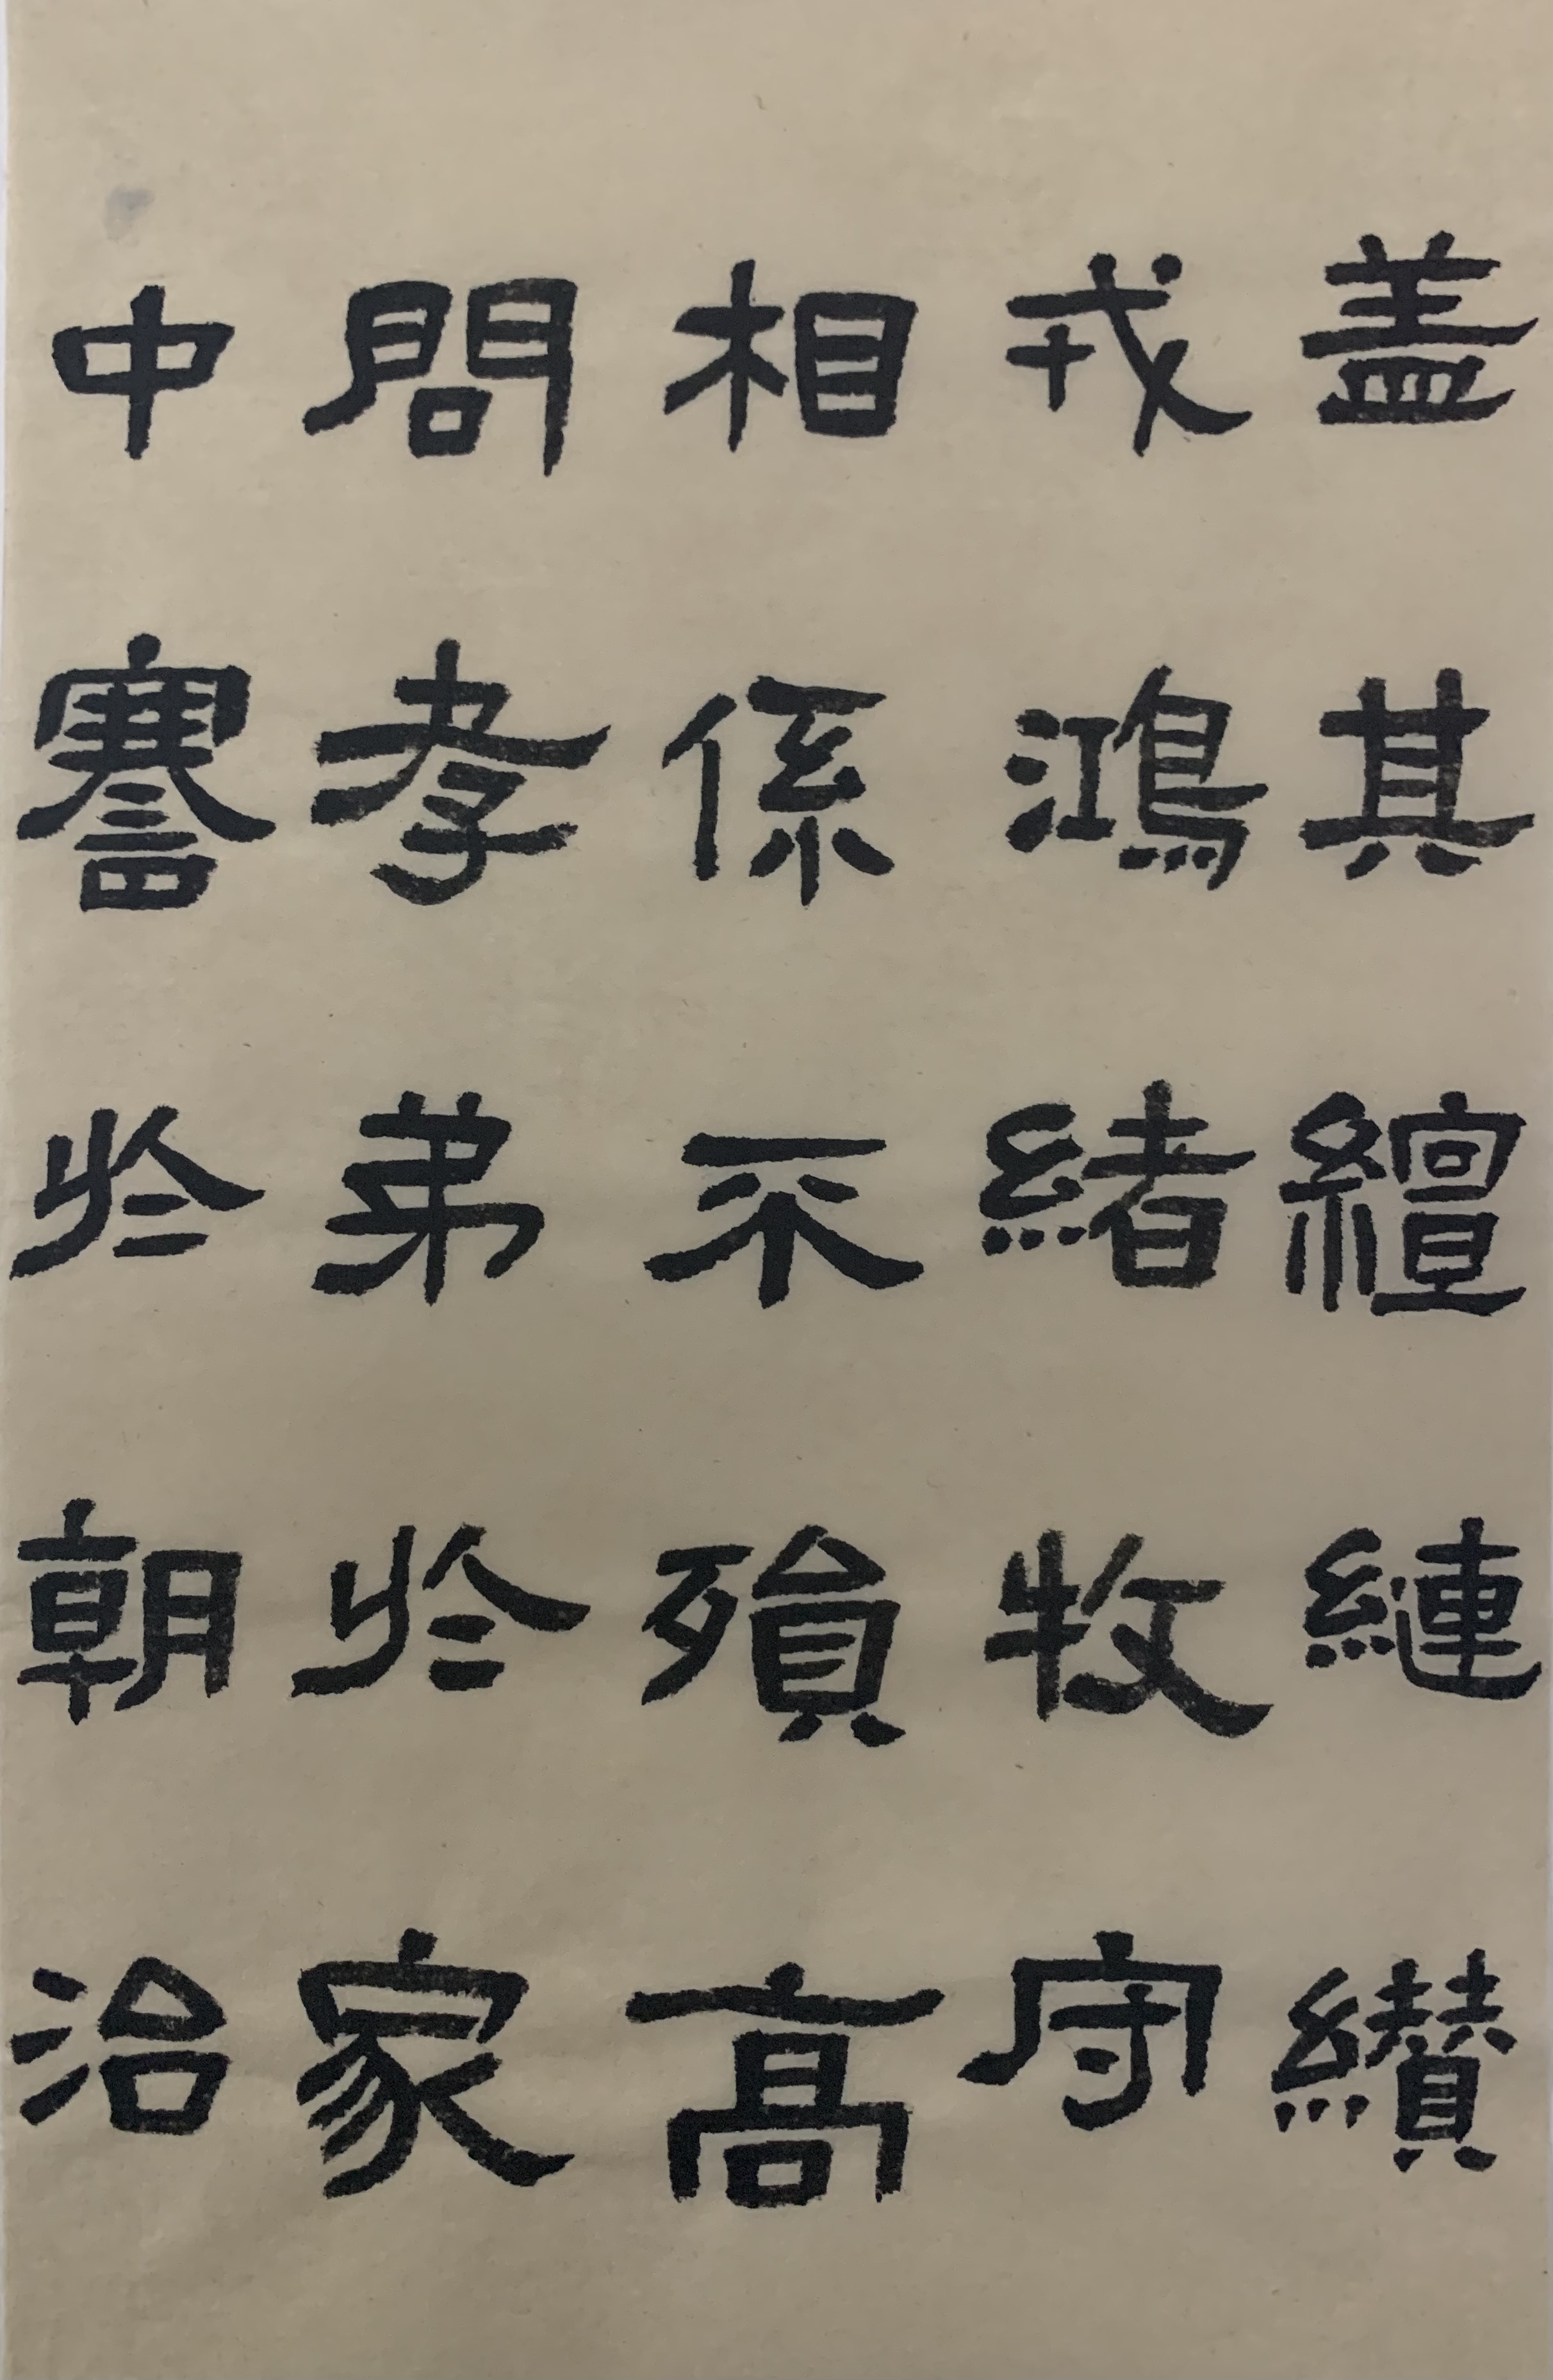 盖其繵縺纉
戎鴻緒牧守
相係不殞高
問孝弟於家
中謇於朝治